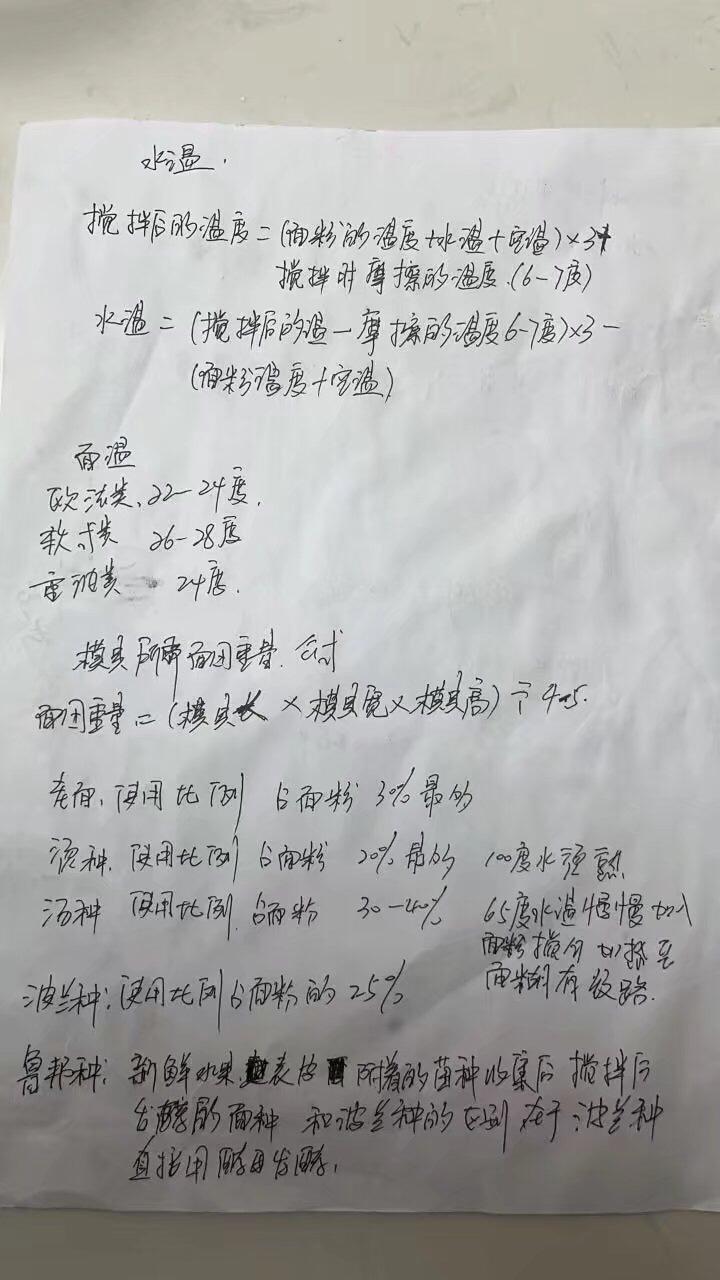 水温.
搅拌后的温度=(面粉的温度+水温+室温)×3+
搅拌时摩擦的温度.(6-7度)
水温=(搅拌后的温-摩擦的温度6-7度)×3-
(面粉温度+室温)
面温
欧法类、22-24度.
软式类 26-28度
重油类 24度.
模具所需面团重量.公式
面团重量=(模具长×模具宽×模具高)÷4.5.
老面、使用比例 占面粉 30% 最多
烫种、使用比例 占面粉 20% 最多 100度水烫熟
汤种 使用比例、占面粉 30-40% 65度水温慢慢加入
面粉搅匀加热至
面糊有纹路.
波兰种:使用比例占面粉的25%
鲁邦种:新鲜水果表皮附着的菌种收集后 搅拌后
发酵的面种 和波兰种的区别 在于波兰种
直接用酵母发酵.